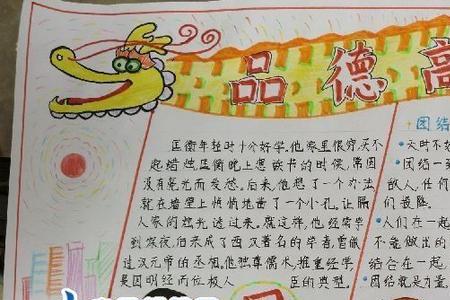 品德高
匡衡年轻时十分好学。他家里很穷,买不
起蜡烛,匡衡晚上想读书的时候,常因
没有亮光而发愁。后来,他想了一个办法
就在墙壁上悄悄地凿了一个小孔,让隔
人家的烛光透过来。就这样,他经常学
到深夜,后来成了西汉著名的学者,曾做
过汉元帝的丞相。他独尊儒术,推重经学,
是因明经而位极人 臣的典型。
团结
天时不如
团结一
敌人,任何
们
人们在一起
不能做出的
结合在一起,
团结就是力量,